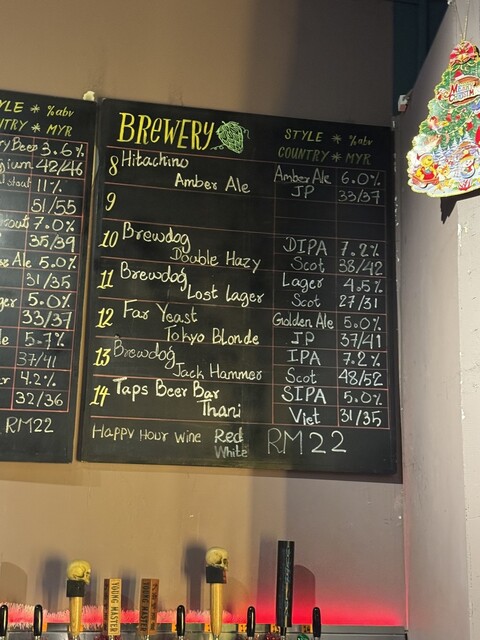 YLE * %abv
NTRY * MYR
3.6%
gium 42/46
stout 11%
51/55
out 7.0%
35/39
Ale 5.0%
31/35
ger 5.0%
33/37
le 5.7%
37/41
er 4.2%
32/36
RM22
BREWERY STYLE * %abv
COUNTRY * MYR
8 Hitachino Amber Ale 6.0%
Amber Ale JP 33/37
9
10 Brewdog DIPA 7.2%
Double Hazy Scot 38/42
11 Brewdog Lager 4.5%
Lost Lager Scot 27/31
12 Far Yeast Golden Ale 5.0%
Tokyo Blonde JP 37/41
13 Brewdog IPA 7.2%
Jack Hammer Scot 48/52
14 Taps Beer Bar SIPA 5.0%
Thani Viet 31/35
Happy Hour Wine Red RM22
White
MERRY
YOUNG MASTER
YOUNG MASTER